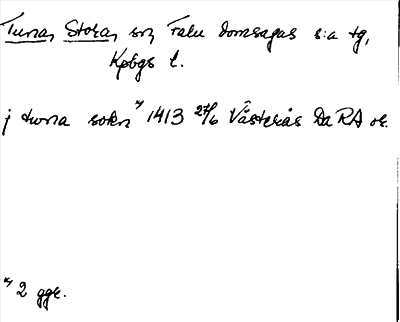 Tuna, Stora, sn, Falu domsagas s:a tg,
Kpbgs l.
j tuna sokn *) 1413 27/6 Västerås Da RA or.
*) 2 ggr.